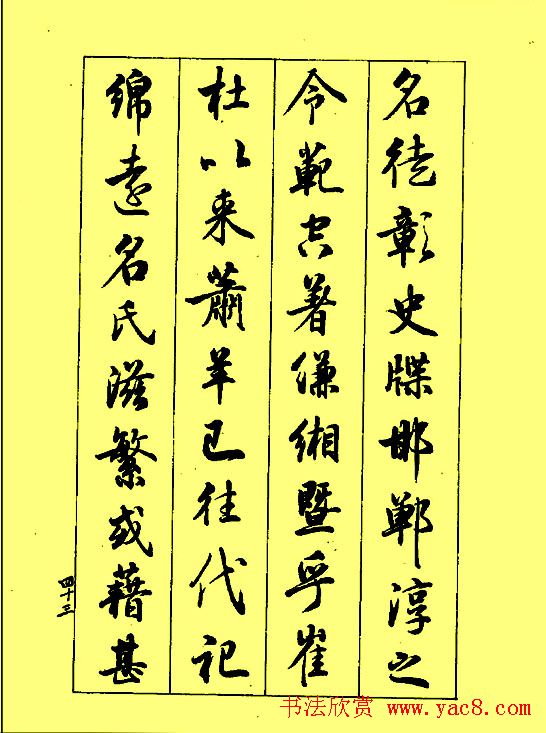 名徒彰史牒邯鄲淳之
令範空著縑缃暨乎崔
杜以来蕭羊已往代记
绵遠名氏滋繁或藉甚
四十三
书法欣赏 www.yac8.com